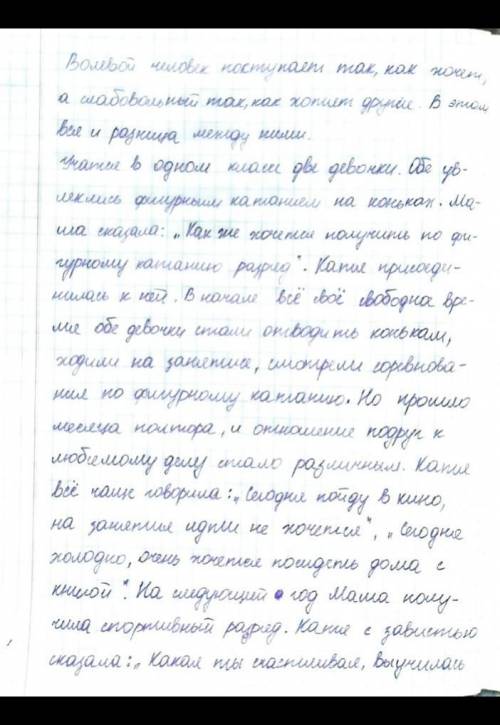 Волевой человек поступает так, как хочет,
а слабовольный так, как хотят другие. В этом
вся и разница между ними.
Учатся в одном классе две девочки. Обе ув-
леклись фигурным катанием на коньках. Ма-
ша сказала: „Как же хочется получить по фи-
гурному катанию разряд". Катя присоеди-
нилась к ней. В начале всё своё свободна вре-
мя обе девочки стали отводить конькам,
ходили на занятие, смотрели соревнова-
ния по фигурному катанию. Но прошло
месяца полтора, и отношение подруг к
любимому делу стало различным. Катя
всё чаще говорила: „Сегодня пойду в кино,
на занятия идти не хочется", „Сегодня
холодно, очень хочется посидеть дома с
книгой". На следующий год Маша полу-
чила спортивный разряд. Катя с завистью
сказала: „Какая ты счастливая, выучилась